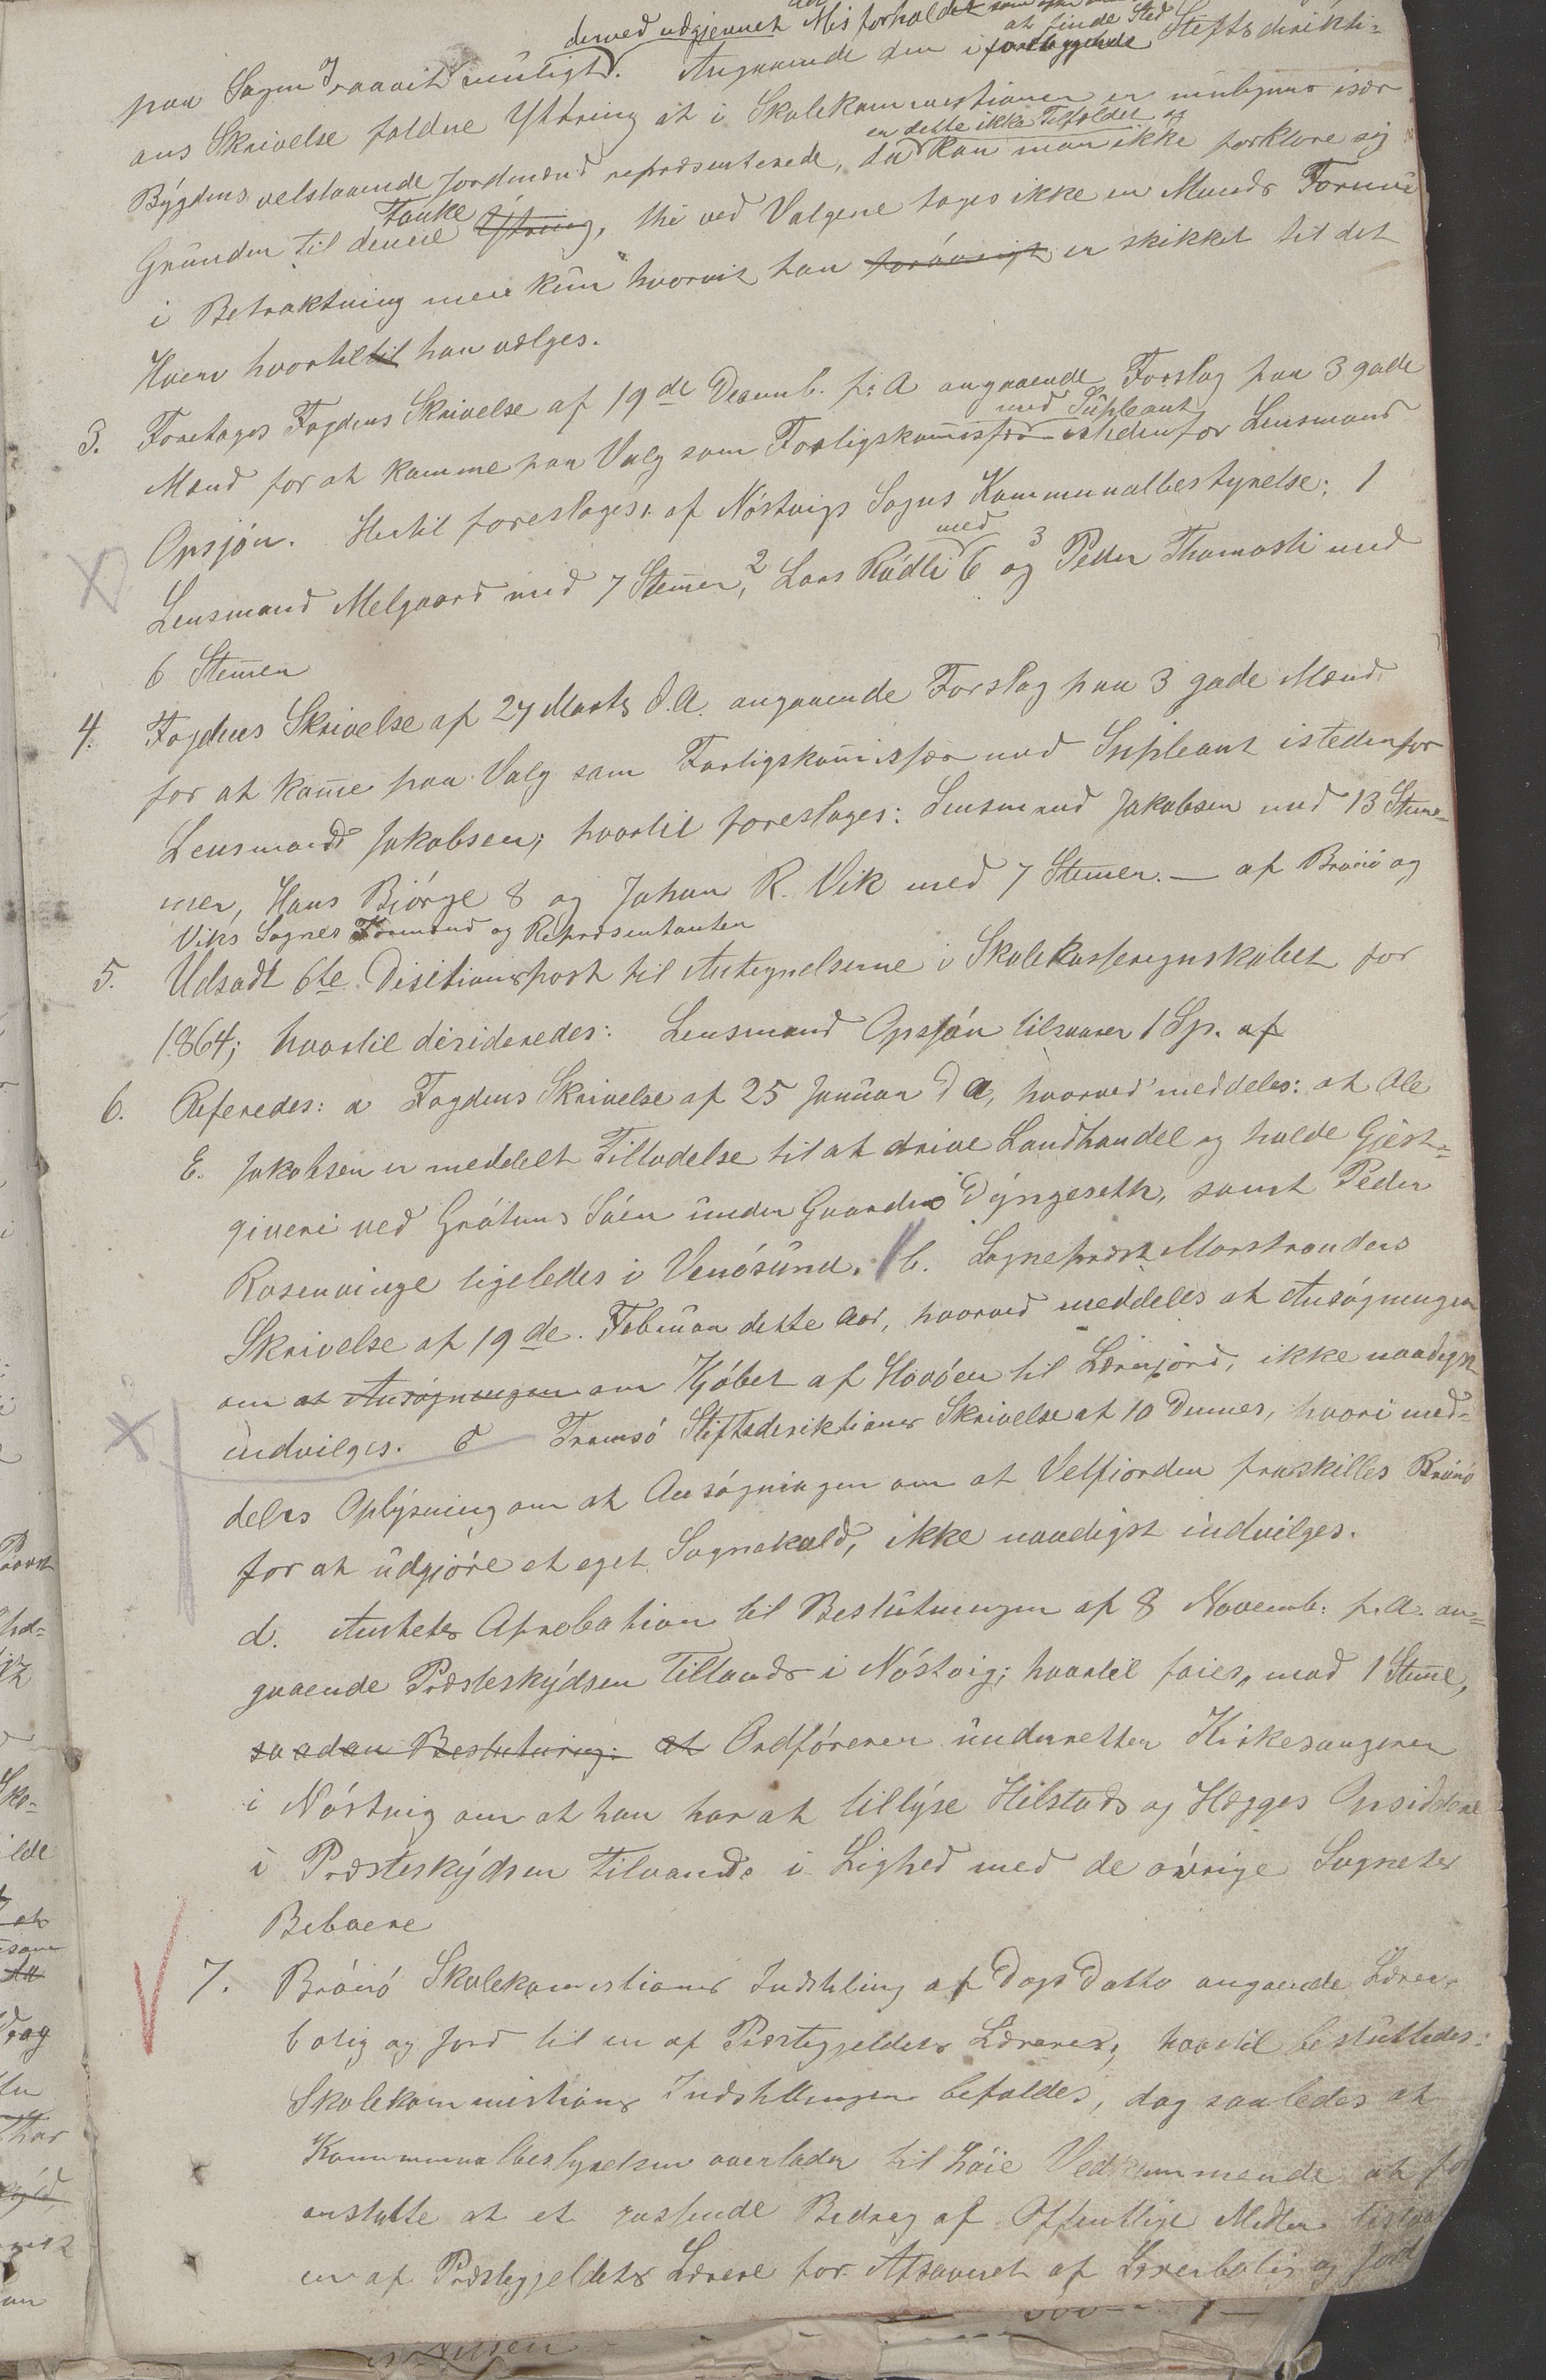 derved udgjennet Misforholdet som
paa Sagen saavit muligt. Angaaende den i foreliggende Stiftsdirekti-
at finde Sted
ons Skrivelse faldne Yttring at i Skolekommistionen er muligens især
en dette ikke Tilfældet og
Bygdens velstaaende Jordmænd repræsenterede, da kan man ikke forklare sig
Tanke
Grunden til denne Ytring, thi ved Valgene tages ikke en Mands Formue
i Betraktning men kun hvorvit han forövrigt er skikket til det
Hverv hvortil til han vælges.
3. Foretages Fogdens Skrivelse af 19de Decemb. f: A angaaende Forslag paa 3 gode
med Supleant
Mænd for at komme paa Valg som Forligskommisfær istedenfor Lensmand
Opsjøn. Hertil foreslages: af Nöstvigs Sogns Kommunalbestyrelse: 1
med
Lensmand Melgaard med 7 Stemer, 2 Lars Rödli 6 og 3 Peder Thomasli med
6 Stemer
4. Fogdens Skrivelse af 27 Marts d.A. angaaende Forslag paa 3 gode Mænd
for at kome paa Valg som Forligskomisfær med Supleant istedenfor
Lensmand Jakobsen; hvortil foreslages: Lensmand Jakobsen med 13 Stem-
mer, Hans Björge 8 og Johan R. Vik med 7 Stemer. — af Brönö og
Viks Sognes Formænd og Repræsentanter
5. Udsadt 6te Disitionspost til Antegnelserne i Skolekasseregnskabet for
1864; hvortil desideredes: Lensmand Opsjön tilsvarer 1 Sp. af
6. Referedes: a Fogdens Skrivelse af 25 Januar d A, hvorved meddeles: at Ole
E. Jakobsen er meddelt Tilladelse til at drive Landhandel og holde Gjest-
giveri ved Gröttens Söen under Gaarden Dyngeseth, samt Peder
Rosenvinge ligeledes i Venösund. b. Sognepræst Marstranders
Skrivelse af 19de Februar dette Aar, hvorved meddeles at Ansøgningen
om at Ansøgningen om Kjöbet af Havöen til Lærerjord, ikke naadigst
indvilges. c Tromsö Stiftsdirektions Skrivelse af 10 Dennes, hvori med-
deles Oplysning om at Ansögningen om at Velfiorden fraskilles Brönö
for at udgjöre et eget Sognekald, ikke naadigst indvilges.
d. Amtets Aprobation til Beslutningen af 8 Novemb: f.A. an-
gaaende Præsteskydsen Tillands i Nöstvig; hvortil föies, mod 1 Stemme,
saadan Beslutning: at Ordföreren underretter Kirkesangeren
i Nöstvig om at han har at tillyse Hilstads og Hægges Opsiddere
i Præsteskydsen tilvands i Lighed med de övrige Sognets
Beboere
7. Brönö Skolekommistions Indstilling af Dags Datto angaaende Lærer-
bolig og Jord til en af Præstegjeldets Lærerer; hvortil besluttedes:
Skolekommistions Indstillingen befaldes, dog saaledes at
Kommunalbestyrelsen overlader til höie Vedkommende at for
anstalte at et passende Bidrag af Offentlige Midler
en af Præstegjeldets Lærere for Afsavnet af Lærerbolig og Jord